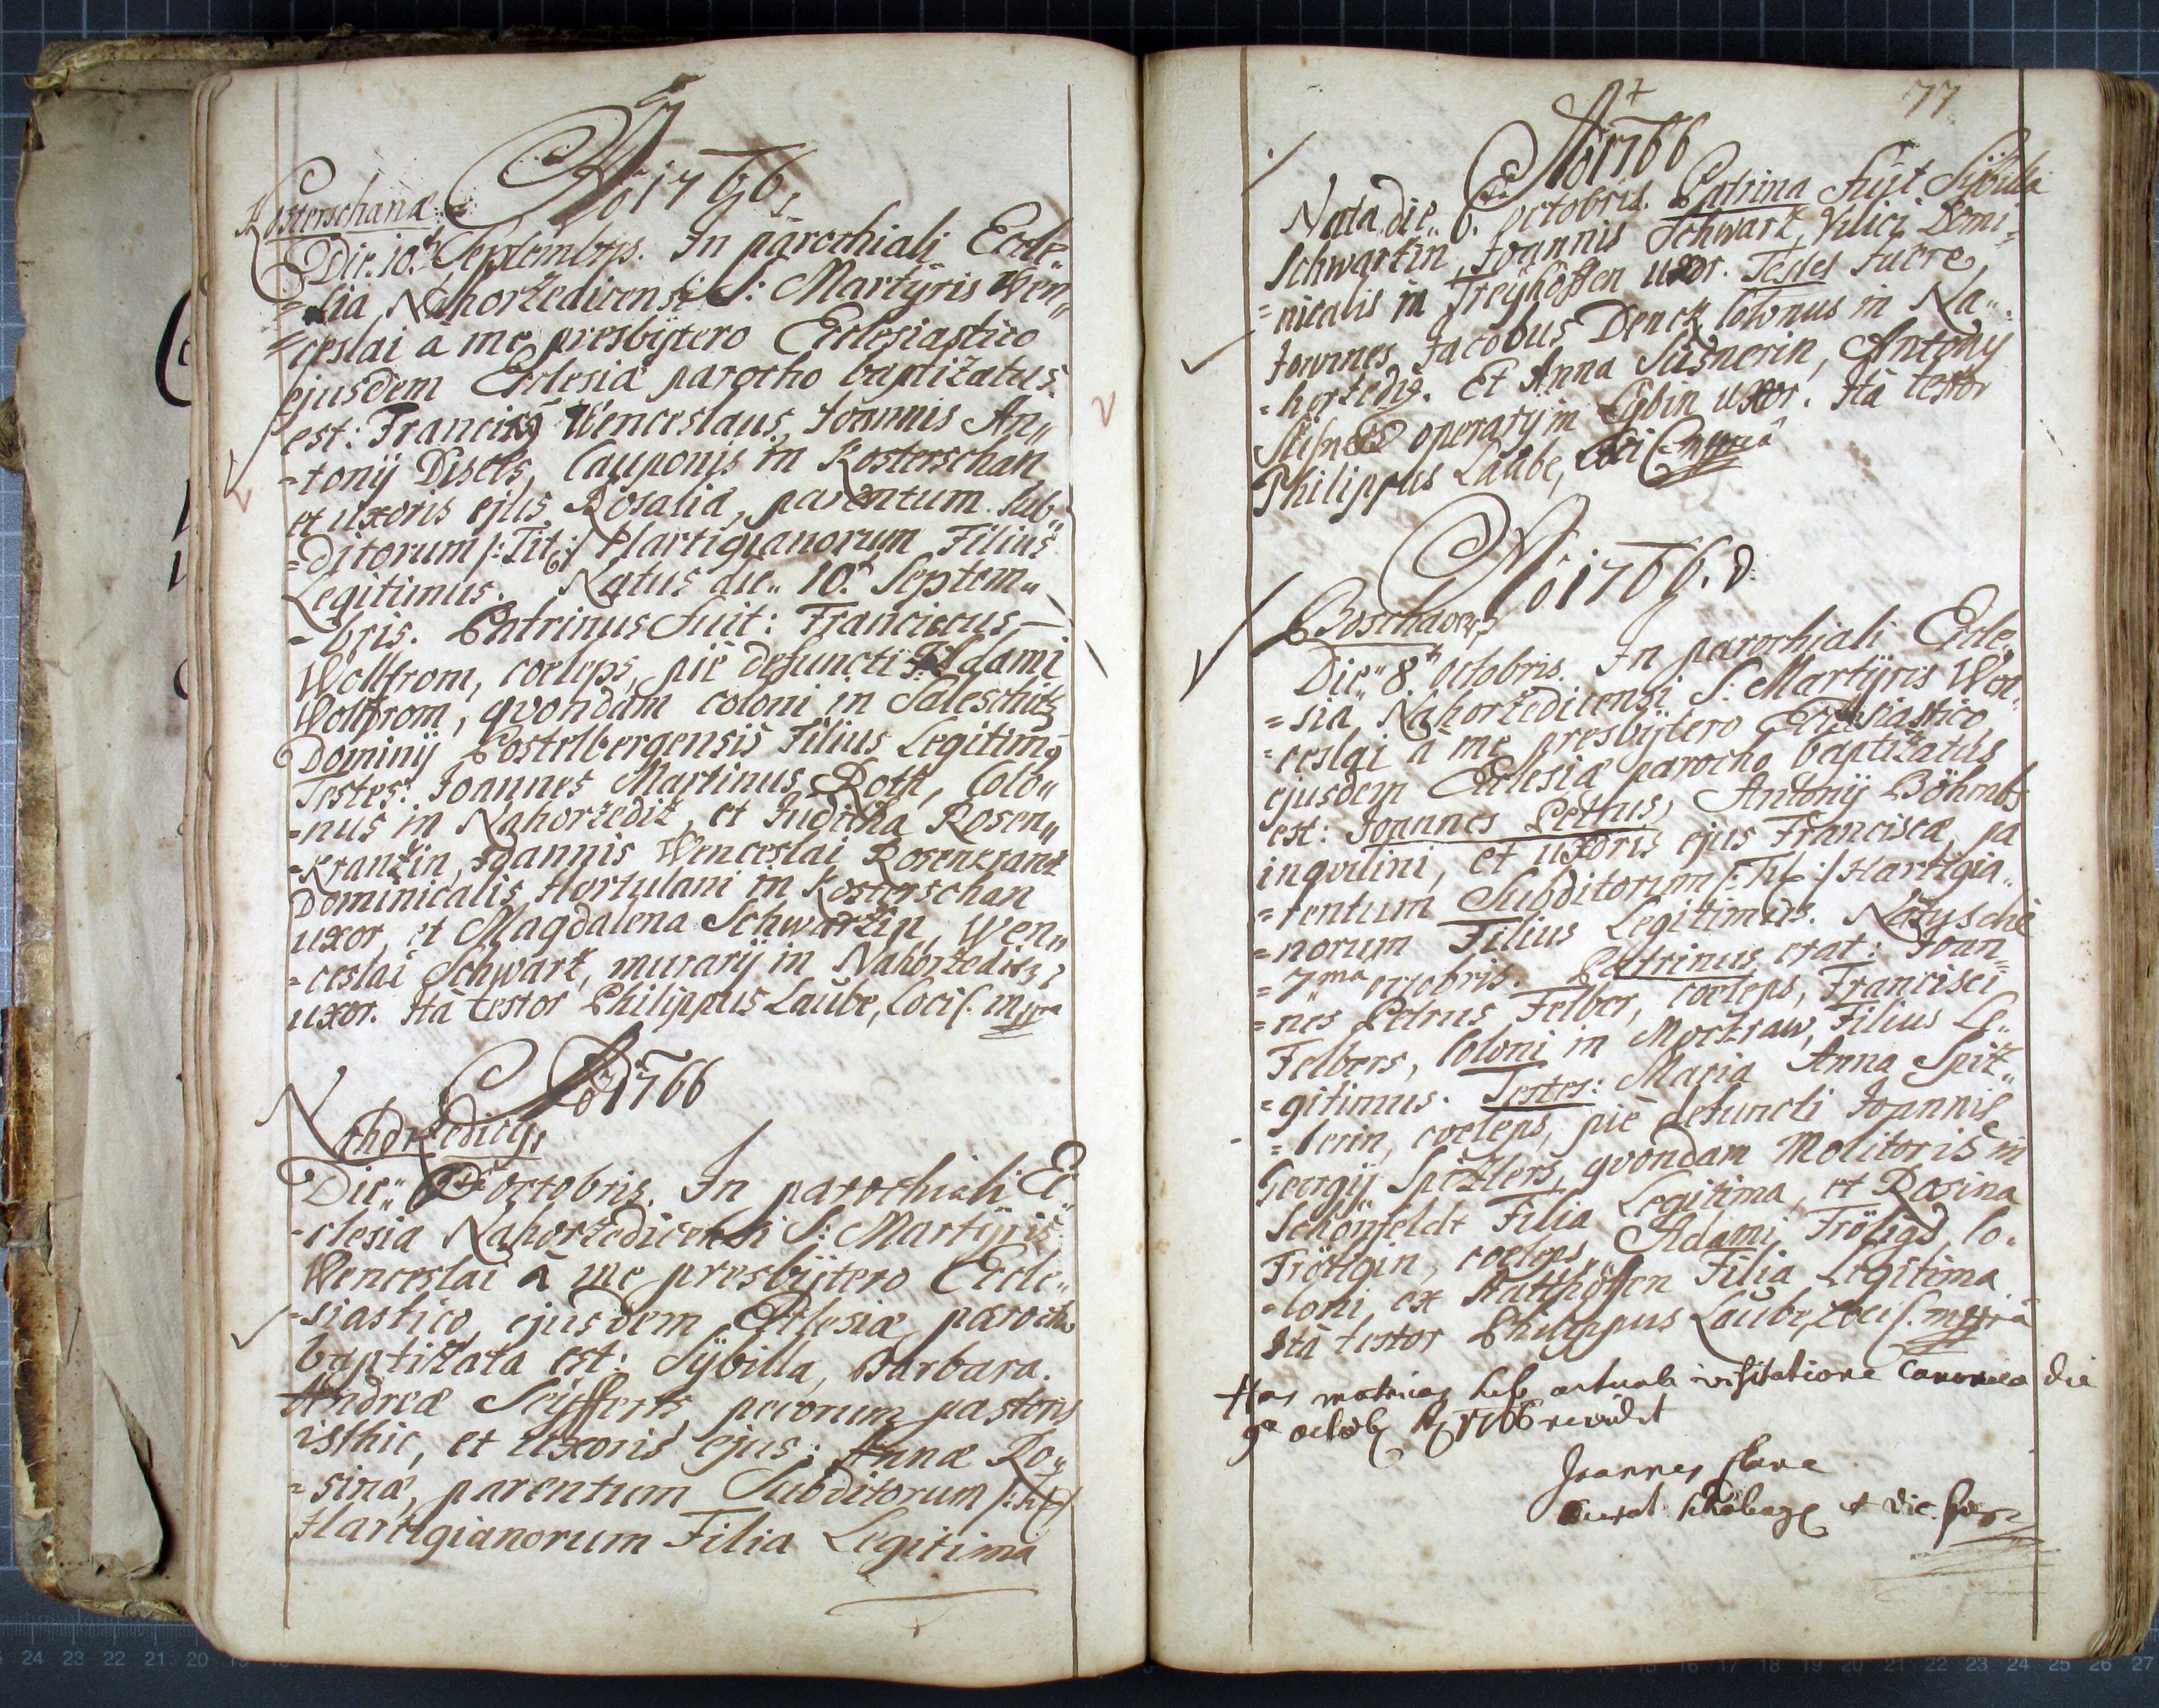 Ao 1766.
Kosterschanæ
Die 10.t Septembris. In parochiali Eccle„
=sia Nahoržedicensi S: Martÿris Wen„
=ceslai à me presbÿtero Ecclesiastico
ejusdem Eclesiæ parocho baptizatus
est: Franciscus Wenceslaus, Joannis An„
=tonij Disels, Cauponis in Kosterschan
et uxoris ejus Rosaliæ, parentum sub„
=ditorum /: Tit: / Hartigianorum Filius
Legitimus. Natus die„ 10.t Septem„
=bris. Patrinus Fuit: Franciscus
Wollfrom, coelebs, piè defuncti Adami
Wolfrom, qvondam coloni in Saleschitz
Dominij Postelbergensis Filius Legitimus
Testes: Joannes Martinus Roth, Colo„
=nus in Nahoržediz, et Juditha Rosen„
=kranzin, Joannis Wenceslai Rosenkranz
Dominicalis Hortulani in Kosterschan
uxor, et Magdalena Schwarzin, Wen„
=ceslai Schwarz, murarij in Nahoržeditz
uxor. Ità testor Philippus Laube, Loci C. mppria
Ao 1766
Nahoržedicÿ
Die„ octobris. In parochiali Ec„
=clesia Nahoržedicensi S: Martÿris
Wenceslai à me presbÿtero Eccle„
=siastico, ejusdem Eclesiæ, parocho
baptizata est: Sÿbilla, Barbara.
Andreæ Seÿfferts, pecorum pastoris
isthic, et uxoris ejus: Annæ Ro„
=sinæ, parentum Subditorum /: tit: /
Hartigianorum Filia Legitima
77
Ao 1766
Nata die„ 6. octobris. Patrina Fuit Sÿbilla
Schwartzin, Joannis Schwarz, Vilici Domi„
=nicalis in Freÿhöffen uxor. Testes fuere,
Joannes Jacobus Denck, Colonus in Na„
=horžediz. Et Anna Susnerin, Antonÿ
operarÿ in uxor. Ità testor
Philippus Laube, Loci C. mppria
Ao 1766.
Boschaw
Die„ 8.t octobris. In parochiali Eccle„
=sia Nahoržedicensi S: Martÿris Wen„
=ceslai à me presbÿtero Ecclesiastico
ejusdem Eclesiæ parocho baptizatus
est: Joannes Petrus, Antonij Böhmbs
inqvilini, et uxoris ejus Franciscæ, pa
=rentum Subditorum /: Tit: / Hartigia„
=norum Filius Legitimus. Natus die
=7ma octobris. Patrinus erat: Joan„
=nes Petrus Felber, coelebs, Francisci
Felbers, Coloni in Mockraw, Filius Le„
=gitimus. Testes: Maria Anna Spitz„
=lerin, coelebs, piè defuncti Joannis
Georgij Spitzlers, qvondam Molitoris in
Schönfeldt Filia Legitima, et Rosina
Frötigin, coelebs, Adami Frötigs, Co„
=loni, ex Filia Legitima
Ità testor Philippus Laube, Loci C. mppria
Has matricas sub actuali visitatione Canonica die
9a octob: Ao 1766 revidit
Joannes